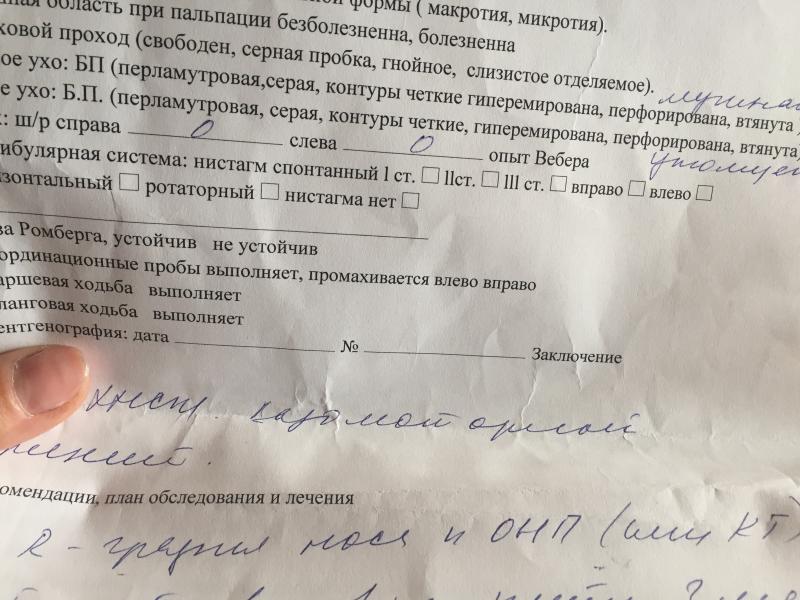 формы ( макротия, микротия).
область при пальпации безболезненна, болезненна
ковой проход (свободен, серная пробка, гнойное, слизистое отделяемое).
ое ухо: БП (перламутровая,серая, контуры четкие гиперемирована, перфорирована, втянута
е ухо: Б.П. (перламутровая, серая, контуры четкие, гиперемирована, перфорирована, втянута)
: ш/р справа 0 слева 0 опыт Вебера
ибулярная система: нистагм спонтанный I ст. □ IIст. □ III ст. □ вправо □ влево □
изонтальный □ ротаторный □ нистагма нет □
за Ромберга, устойчив не устойчив
ординационные пробы выполняет, промахивается влево вправо
аршевая ходьба выполняет
ланговая ходьба выполняет
ентгенография: дата № Заключение
вазомоторный
ринит.
омендации, план обследования и лечения
R - графия носа и ОНП (или КТ)